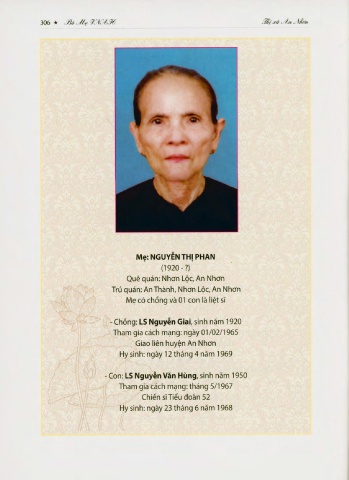 306 ★ Bà Mẹ VNAH
Thị xã An Nhơn
Mẹ: NGUYỄN THỊ PHAN
(1920 - ?)
Quê quán: Nhơn Lộc, An Nhơn
Trú quán: An Thành, Nhơn Lộc, An Nhơn
Mẹ có chồng và 01 con là liệt sĩ
- Chồng: LS Nguyễn Giai, sinh năm 1920
Tham gia cách mạng: ngày 01/02/1965
Giao liên huyện An Nhơn
Hy sinh: ngày 12 tháng 4 năm 1969
- Con: LS Nguyễn Văn Hùng, sinh năm 1950
Tham gia cách mạng: tháng 5/1967
Chiến sĩ Tiểu đoàn 52
Hy sinh: ngày 23 tháng 6 năm 1968